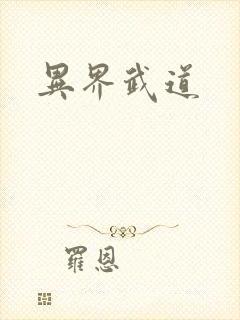 異界武道
羅恩